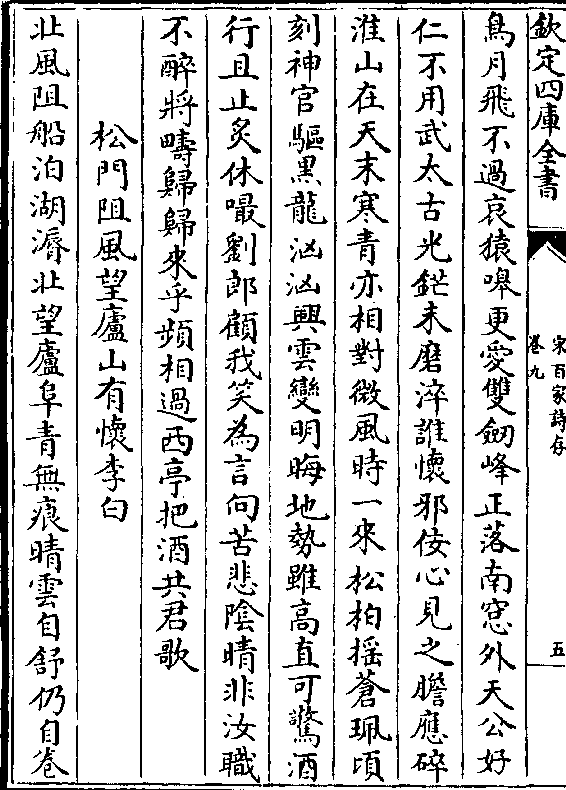 欽定四庫全書
宋百家詩存
卷九
五
鳥月飛不過哀猿嘷更愛雙劒峰正落南窓外天公好
仁不用武太古光鋩未磨淬誰懷邪佞心見之膽應碎
淮山在天末寒青亦相對微風時一來松柏揺蒼珮頃
刻神官驅黑龍洶洶興雲變明晦地勢雖高直可驚酒
行且止炙休嘬劉郎顧我笑為言何苦悲陰晴非汝職
不醉將疇歸歸來乎頻相過西亭把酒共君歌
松門阻風望廬山有懷李白
北風阻船泊湖漘北望廬阜青無痕晴雲自舒仍自卷